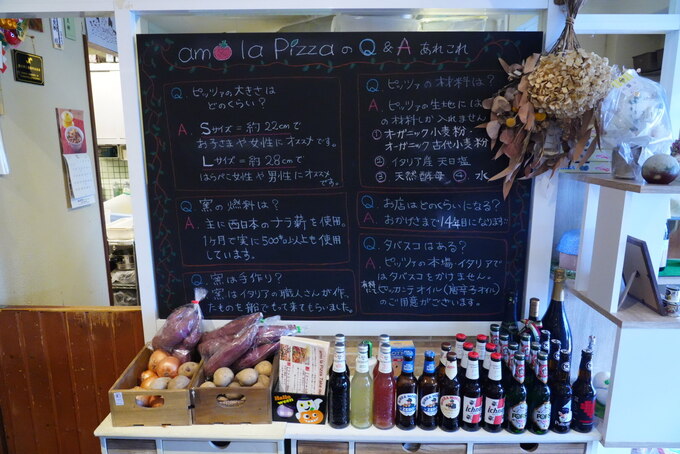 amo la Pizza の Q & A あれこれ
Q. ピッツァの大きさは
どのくらい？
A. Sサイズ = 約22cmで
お子さまや女性にオススメです。
Lサイズ = 約28cmで
はらぺこ女性や男性にオススメ
です。
Q. 窯の燃料は？
A. 主に西日本のナラ薪を使用。
1ヶ月で実に500kg以上も使用
しています。
Q. 窯は手作り？
A. 窯はイタリアの職人さんが作っ
たものを船でもって来てもらいました。
Q. ピッツァの材料は？
A. ピッツァの生地には
の材料しか入れません
① オーガニック小麦粉・
オーガニック古代小麦粉
② イタリア産天日塩
③ 天然酵母 ④ 水
Q. お店はどのくらいになる？
A. おかげさまで14年目になります!!
Q. タバスコはある？
A. ピッツァの本場・イタリアで
はタバスコをかけません。
有料にて ピッカンテオイル(唐辛子オイル)
のご用意がございます。
Hallo
ween
Ichnusa
Ichnusa